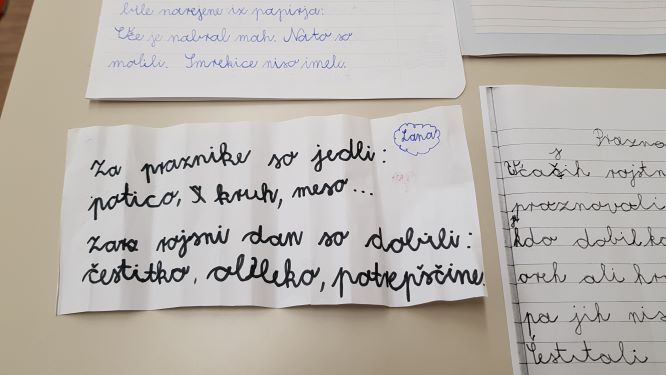 bile narejene iz papirja.
Oče je nabral mah. Nato so
molili. Smrekice niso imeli.
Lana
Za praznike so jedli:
potico, kruh, meso...
Zara rojsni dan so dobili:
čestitko, obleko, potrepščine.
Prazno
rojstn
praznovali
kdo dobil
oreh ali kr
pa jih nis
čestitali